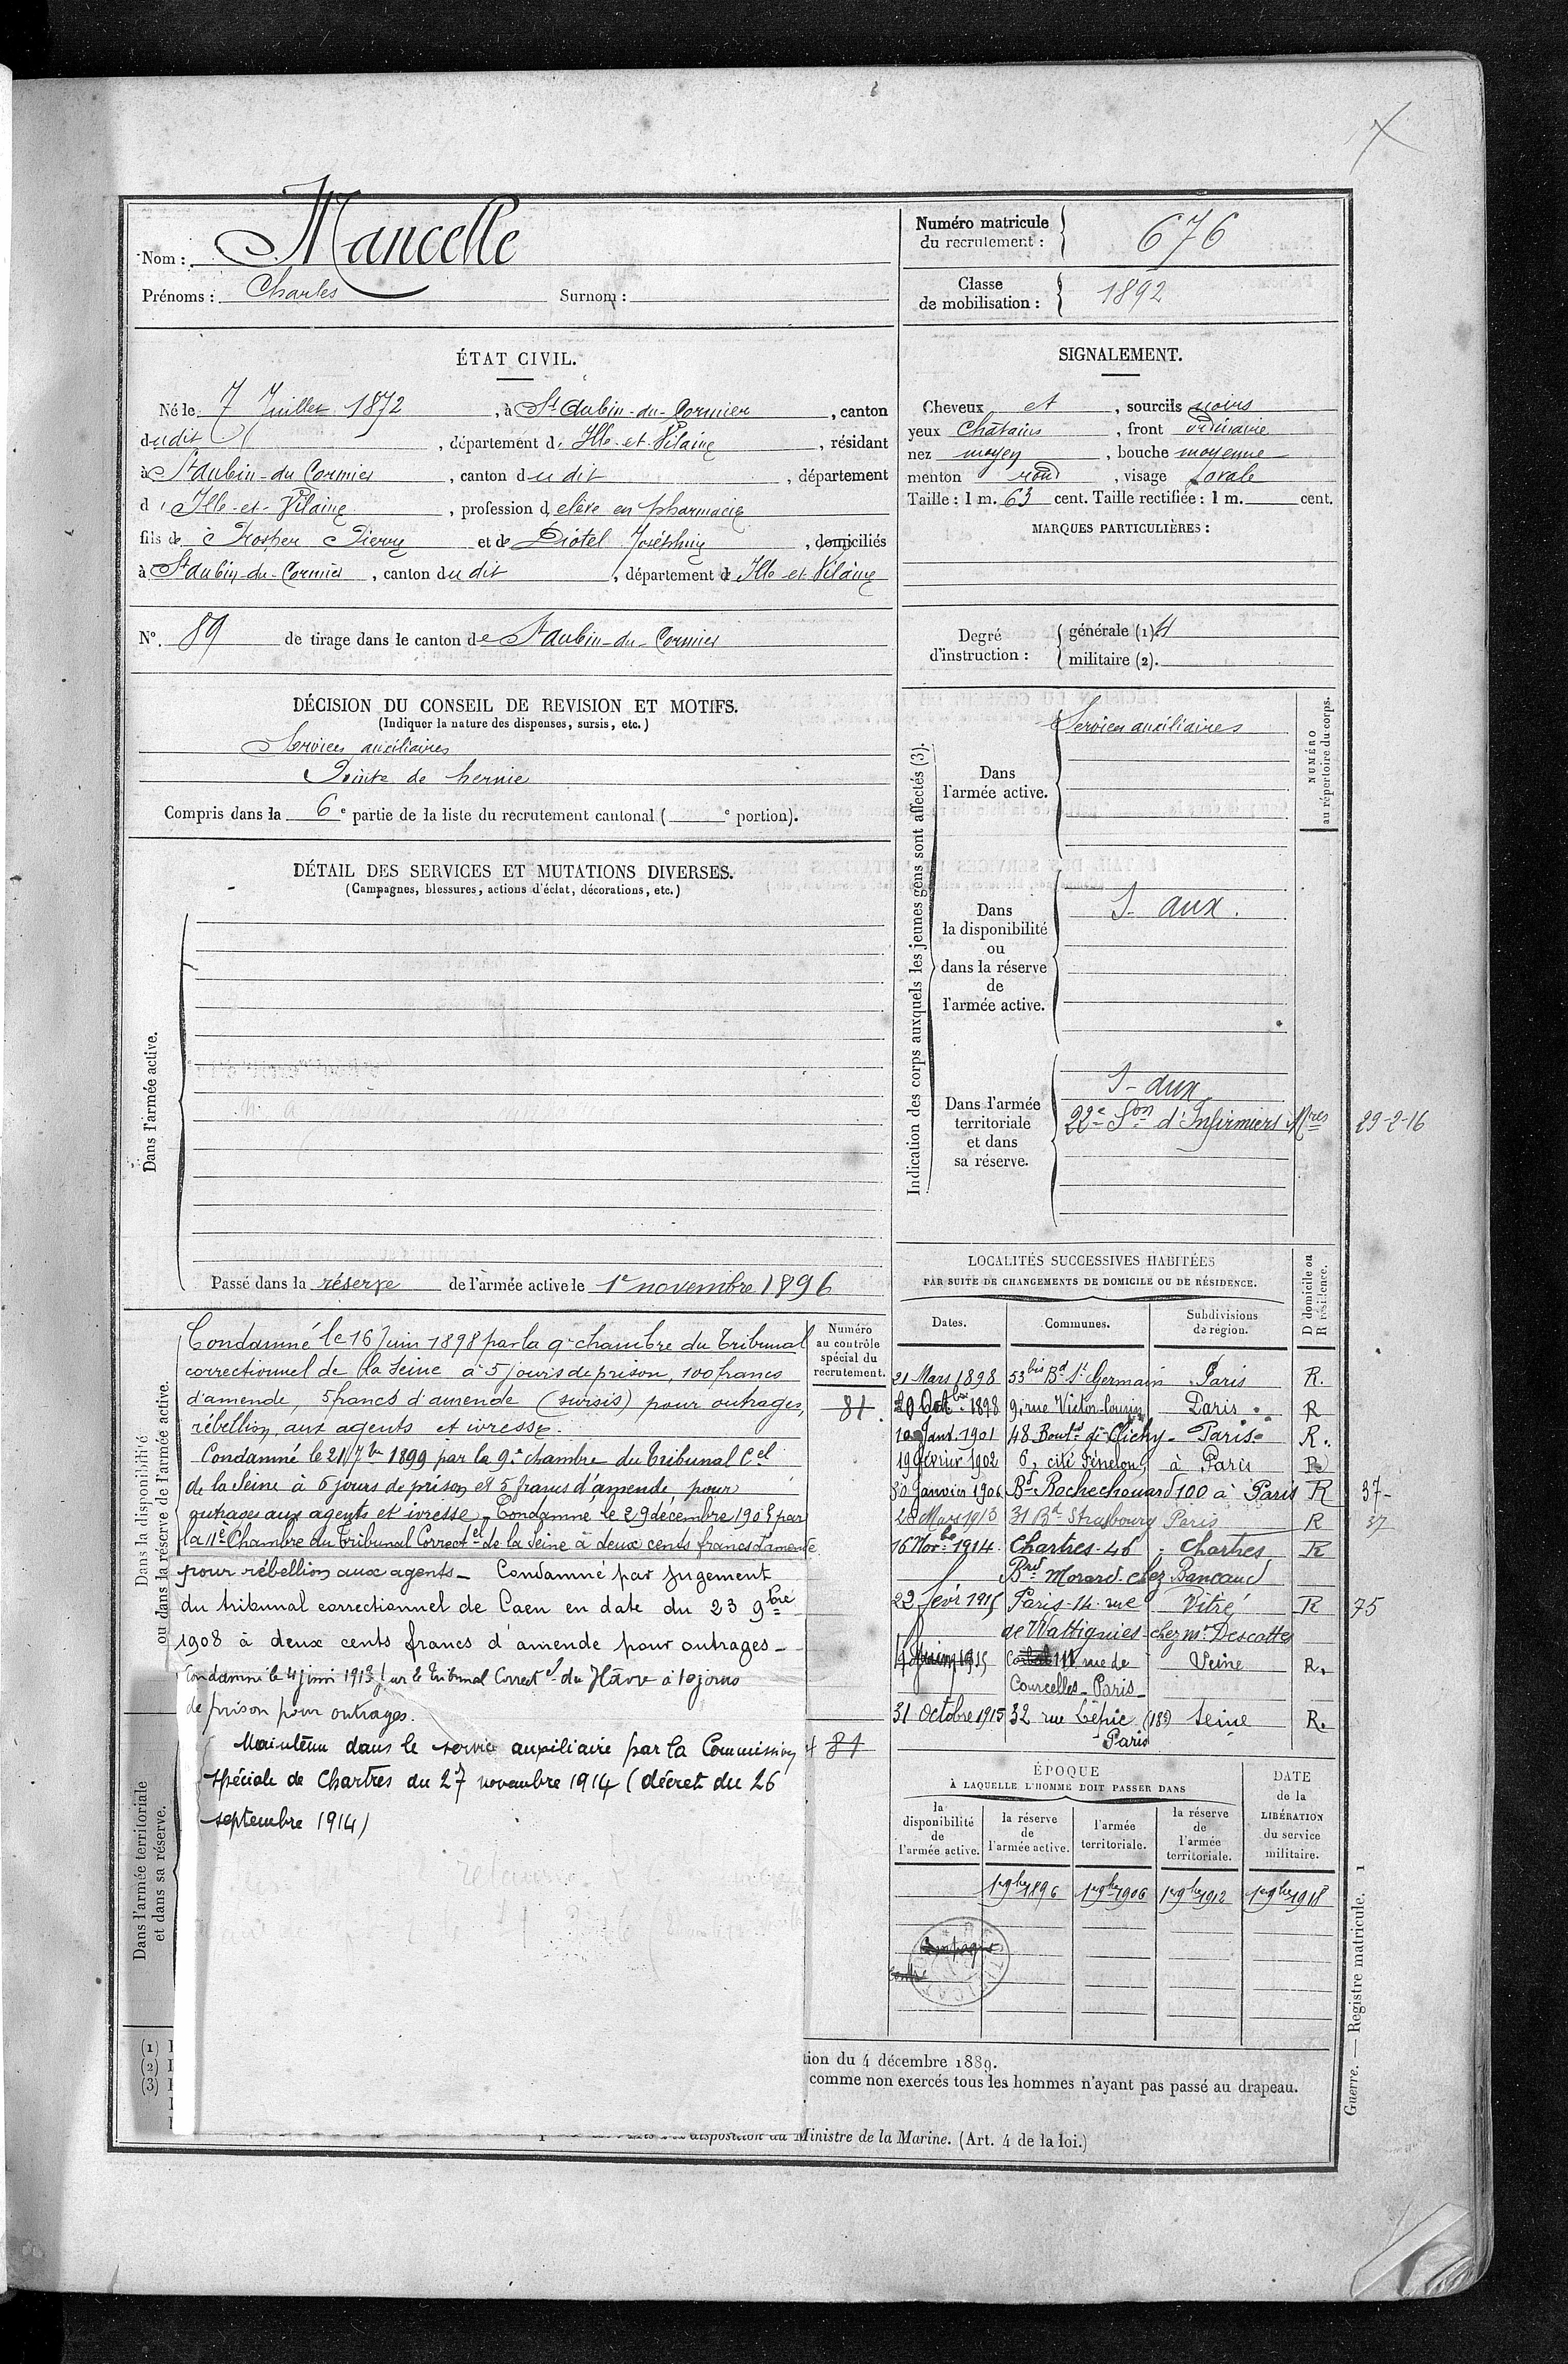 Nom : Mancelle
Prénoms : Charles Surnom :
Numéro matricule
du recrutement : 676
Classe
de mobilisation : 1892
ÉTAT CIVIL.
Né le 7 Juillet 1872, à St Aubin-du-Cormier, canton
dudit, département d'Ille-et-Vilaine, résidant
à St Aubin-du-Cormier, canton dudit, département
d'Ille-et-Vilaine, profession d'elève en pharmacie
fils de Prosper Pierre et de Diotel Joséphine, domiciliés
à St Aubin-du-Cormier, canton dudit, département d'Ille et Vilaine
N°. 89 de tirage dans le canton de St Aubin-du-Cormier
SIGNALEMENT.
Cheveux et, sourcils noirs
yeux Châtains, front ordinaire
nez moyen, bouche moyenne
menton rond, visage ovale
Taille : 1 m. 63 cent. Taille rectifiée : 1 m. cent.
MARQUES PARTICULIÈRES :
Degré
d'instruction :
générale (1)
militaire (2).
DÉCISION DU CONSEIL DE REVISION ET MOTIFS.
(Indiquer la nature des dispenses, sursis, etc.)
Services auxiliaires
Pointe de hernie
Compris dans la 6e partie de la liste du recrutement cantonal ( e portion).
DÉTAIL DES SERVICES ET MUTATIONS DIVERSES.
(Campagnes, blessures, actions d'éclat, décorations, etc.)
Dans l'armée active.
Passé dans la réserve de l'armée active le 1er novembre 1896
Indication des corps auxquels les jeunes gens sont affectés (3).
NUMÉRO
au répertoire du corps.
Dans
l'armée active.
Services auxiliaires
Dans
la disponibilité
ou
dans la réserve
de
l'armée active.
S- aux.
Dans l'armée
territoriale
et dans
sa réserve.
S- aux
22e Son d'Infirmiers Mres 29-2-16
Dans la disponibilité
ou dans la réserve de l'armée active.
Condamné le 16 Juin 1898 par la 9e chambre du Tribunal
correctionnel de la Seine à 5 jours de prison, 100 francs
d'amende, 5 francs d'amende (sursis) pour outrages,
rébellion aux agents et ivresse.
Condamné le 21 7bre 1899 par la 9e chambre du Tribunal Cel
de la Seine à 6 jours de prison et 5 francs d'amende pour
outrages aux agents et ivresse. Condamné le 29 décembre 1905 par
la 11e Chambre du Tribunal Correctel de la Seine à deux cents francs d'amende
pour rébellion aux agents_ Condamné par jugement
du tribunal correctionnel de Caen en date du 23 9bre
1908 à deux cents francs d'amende pour outrages_
Condamné le 4 juin 1913 par le Tribunal Correctel du Hâvre à 10 jours
de prison pour outrages.
Dans l'armée territoriale
et dans sa réserve.
Maintenu dans le service auxiliaire par la Commission
spéciale de Chartres du 27 novembre 1914 (décret du 26
septembre 1914)
Numéro
au contrôle
spécial du
recrutement.
81
81
LOCALITÉS SUCCESSIVES HABITÉES
PAR SUITE DE CHANGEMENTS DE DOMICILE OU DE RÉSIDENCE.
Dates. Communes. Subdivisions
de région. D domicile ou
R résidence.
21 Mars 1898 53bis Bd St Germain Paris R.
20 Octbre 1898 9, rue Victor-Cousin Paris R
10 Janv. 1901 48 Bould de Clichy Paris R.
19 février 1902 6, cité Fénelon, à Paris R
30 Janvier 1906 Bd Rochechouard 100 à Paris R 37-
28 Mars 1913 31 Bd Strasbourg Paris R 37
16 Novbre 1914. Chartres-46 Chartres R
Brd Morard chez Bancaud
22 fevr 1915 Paris-14 rue Vitré R 75
de Wattignies chez Mr Descottes
1915 111 rue de Seine R.
Courcelles_Paris_
31 Octobre 1915 32 rue Lepic (18e) Seine R.
Paris
ÉPOQUE
À LAQUELLE L'HOMME DOIT PASSER DANS
la
disponibilité
de
l'armée active.
la réserve
de
l'armée active.
l'armée
territoriale.
la réserve
de
l'armée
territoriale.
DATE
de la
LIBÉRATION
du service
militaire.
1er 9bre 1896 1er 9bre 1906 1er 9bre 1912 1er 9bre 1918
(1)
(2)
(3)
tion du 4 décembre 1889.
comme non exercés tous les hommes n'ayant pas passé au drapeau.
disposition du Ministre de la Marine. (Art. 4 de la loi.)
Guerre. — Registre matricule. 1